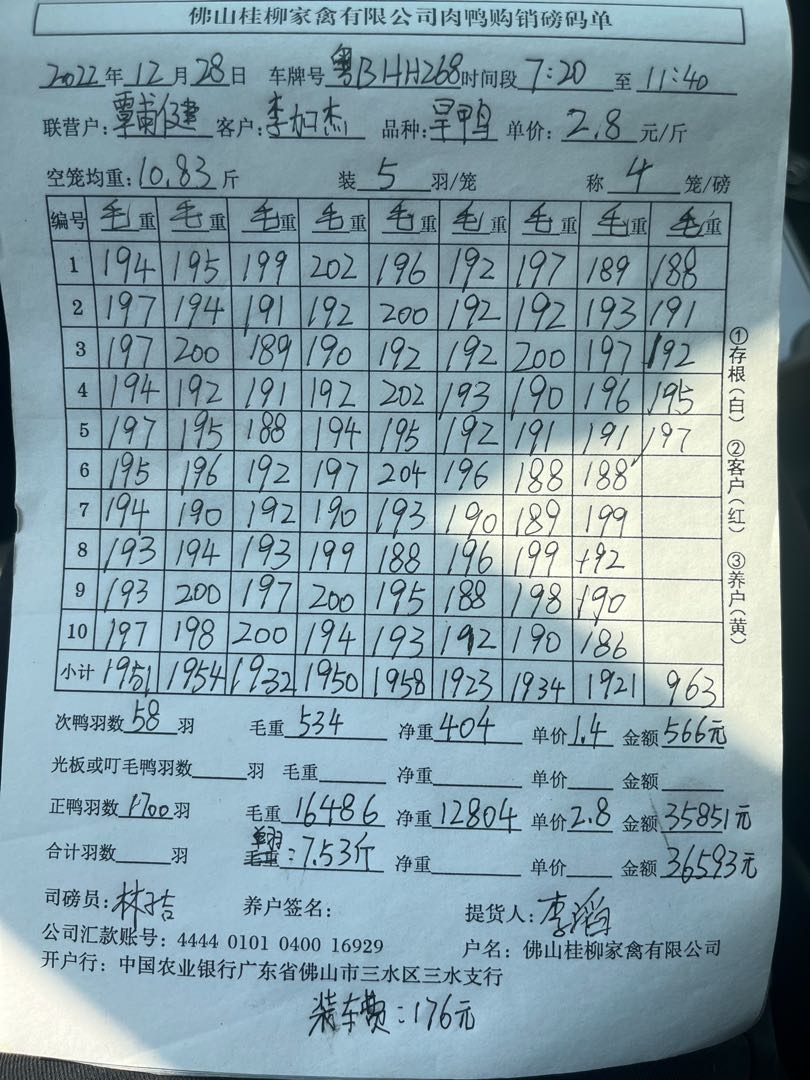 佛山桂柳家禽有限公司肉鸭购销磅码单
2022年12月28日 车牌号粤BHH268时间段7:20至11:40
联营户:覃甫健 客户:李加杰 品种:旱鸭 单价:2.8元/斤
空笼均重:10.83斤 装5羽/笼 称4笼/磅
编号 毛重 毛重 毛重 毛重 毛重 毛重 毛重 毛重 毛重
1 194 195 199 202 196 192 197 189 188
2 197 194 191 192 200 192 192 193 191
3 197 200 189 190 192 192 200 197 192
4 194 192 191 192 202 193 190 196 195
5 197 195 188 194 195 192 191 191 197
6 195 196 192 197 204 196 188 188
7 194 190 192 190 193 190 189 199
8 193 194 193 199 188 196 199 192
9 193 200 197 200 195 188 198 190
10 197 198 200 194 193 192 190 186
小计 1951 1954 1932 1950 1958 1923 1934 1921 963
次鸭羽数58羽 毛重534 净重404 单价1.4 金额566元
光板或叮毛鸭羽数 羽 毛重 净重 单价 金额
正鸭羽数1700羽 毛重16486 净重12804 单价2.8 金额35851元
合计羽数 羽 单羽毛重:7.53斤 净重 单价 金额36593元
司磅员: 养户签名: 提货人:李滔
公司汇款账号:4444 0101 0400 16929 户名:佛山桂柳家禽有限公司
开户行:中国农业银行广东省佛山市三水区三水支行
装车费:176元
①存根(白) ②客户(红) ③养户(黄)